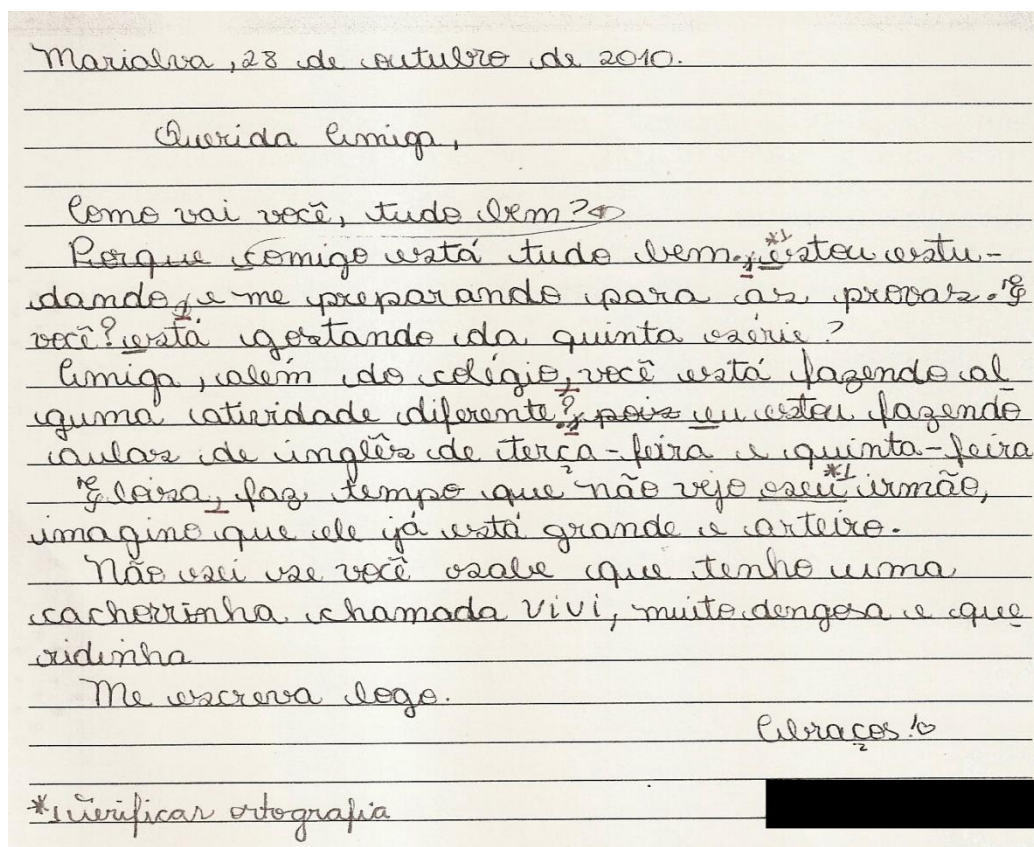 Marialva, 28 de outubro de 2010.
Querida Amiga,
Como vai você, tudo bem?
Porque comigo está tudo bem. *1 estou estu-
dando, e me preparando para as provas. E
você? está gostando da quinta série?
Amiga, além do colégio, você está fazendo al
guma atividade diferente? pois eu estou fazendo
aulas de inglês de terça-feira e quinta-feira
faz tempo que não vejo seu *1 irmão,
imagino que ele já está grande e arteiro.
Não sei se você sabe que tenho uma
cachorrinha chamada Vivi, muito dengosa e que
ridinha
Me escreva logo.
Abraços!
*1 Verificar ortografia